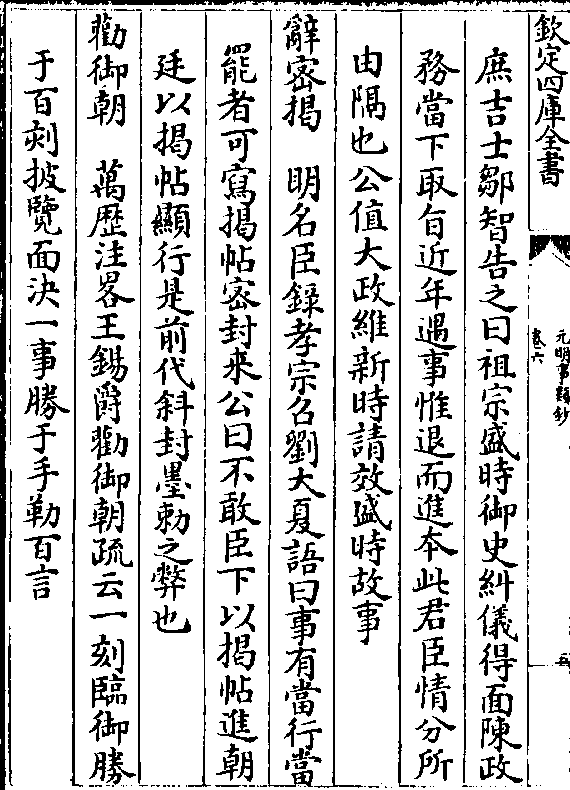 欽定四庫全書
元明事類鈔
卷六
五
庶吉士鄒智告之曰祖宗盛時御史糾儀得面陳政
務當下取旨近年遇事惟退而進本此君臣情分所
由隔也公值大政維新時請效盛時故事
辭密揭　明名臣錄孝宗召劉大夏語曰事有當行當
罷者可寫揭帖密封來公曰不敢臣下以揭帖進朝
廷以揭帖顯行是前代斜封墨勅之弊也
勸御朝　萬歷注畧王錫爵勸御朝疏云一刻臨御勝
于百刻披覽面決一事勝于手勒百言